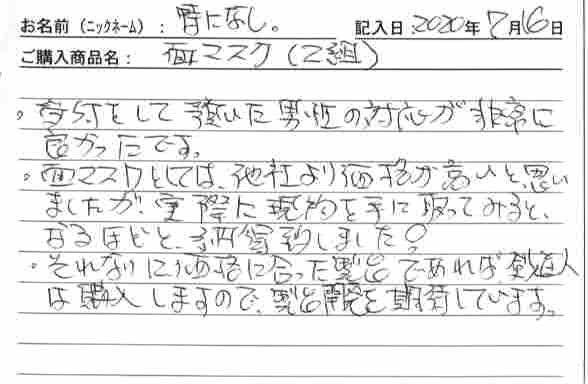 お名前（ニックネーム）： 特になし。 記入日：2020年7月16日
ご購入商品名： 面マスク（2組）
。電話をして頂いた男性の対応が非常に
良かったです。
。面マスクとしては、他社より価格が高いと思い
ましたが、実際に現物を手に取ってみると、
なるほどと、納得致しました！
・それなりに価格に合った製品であれば、
は購入しますので、製品開発を期待しています。